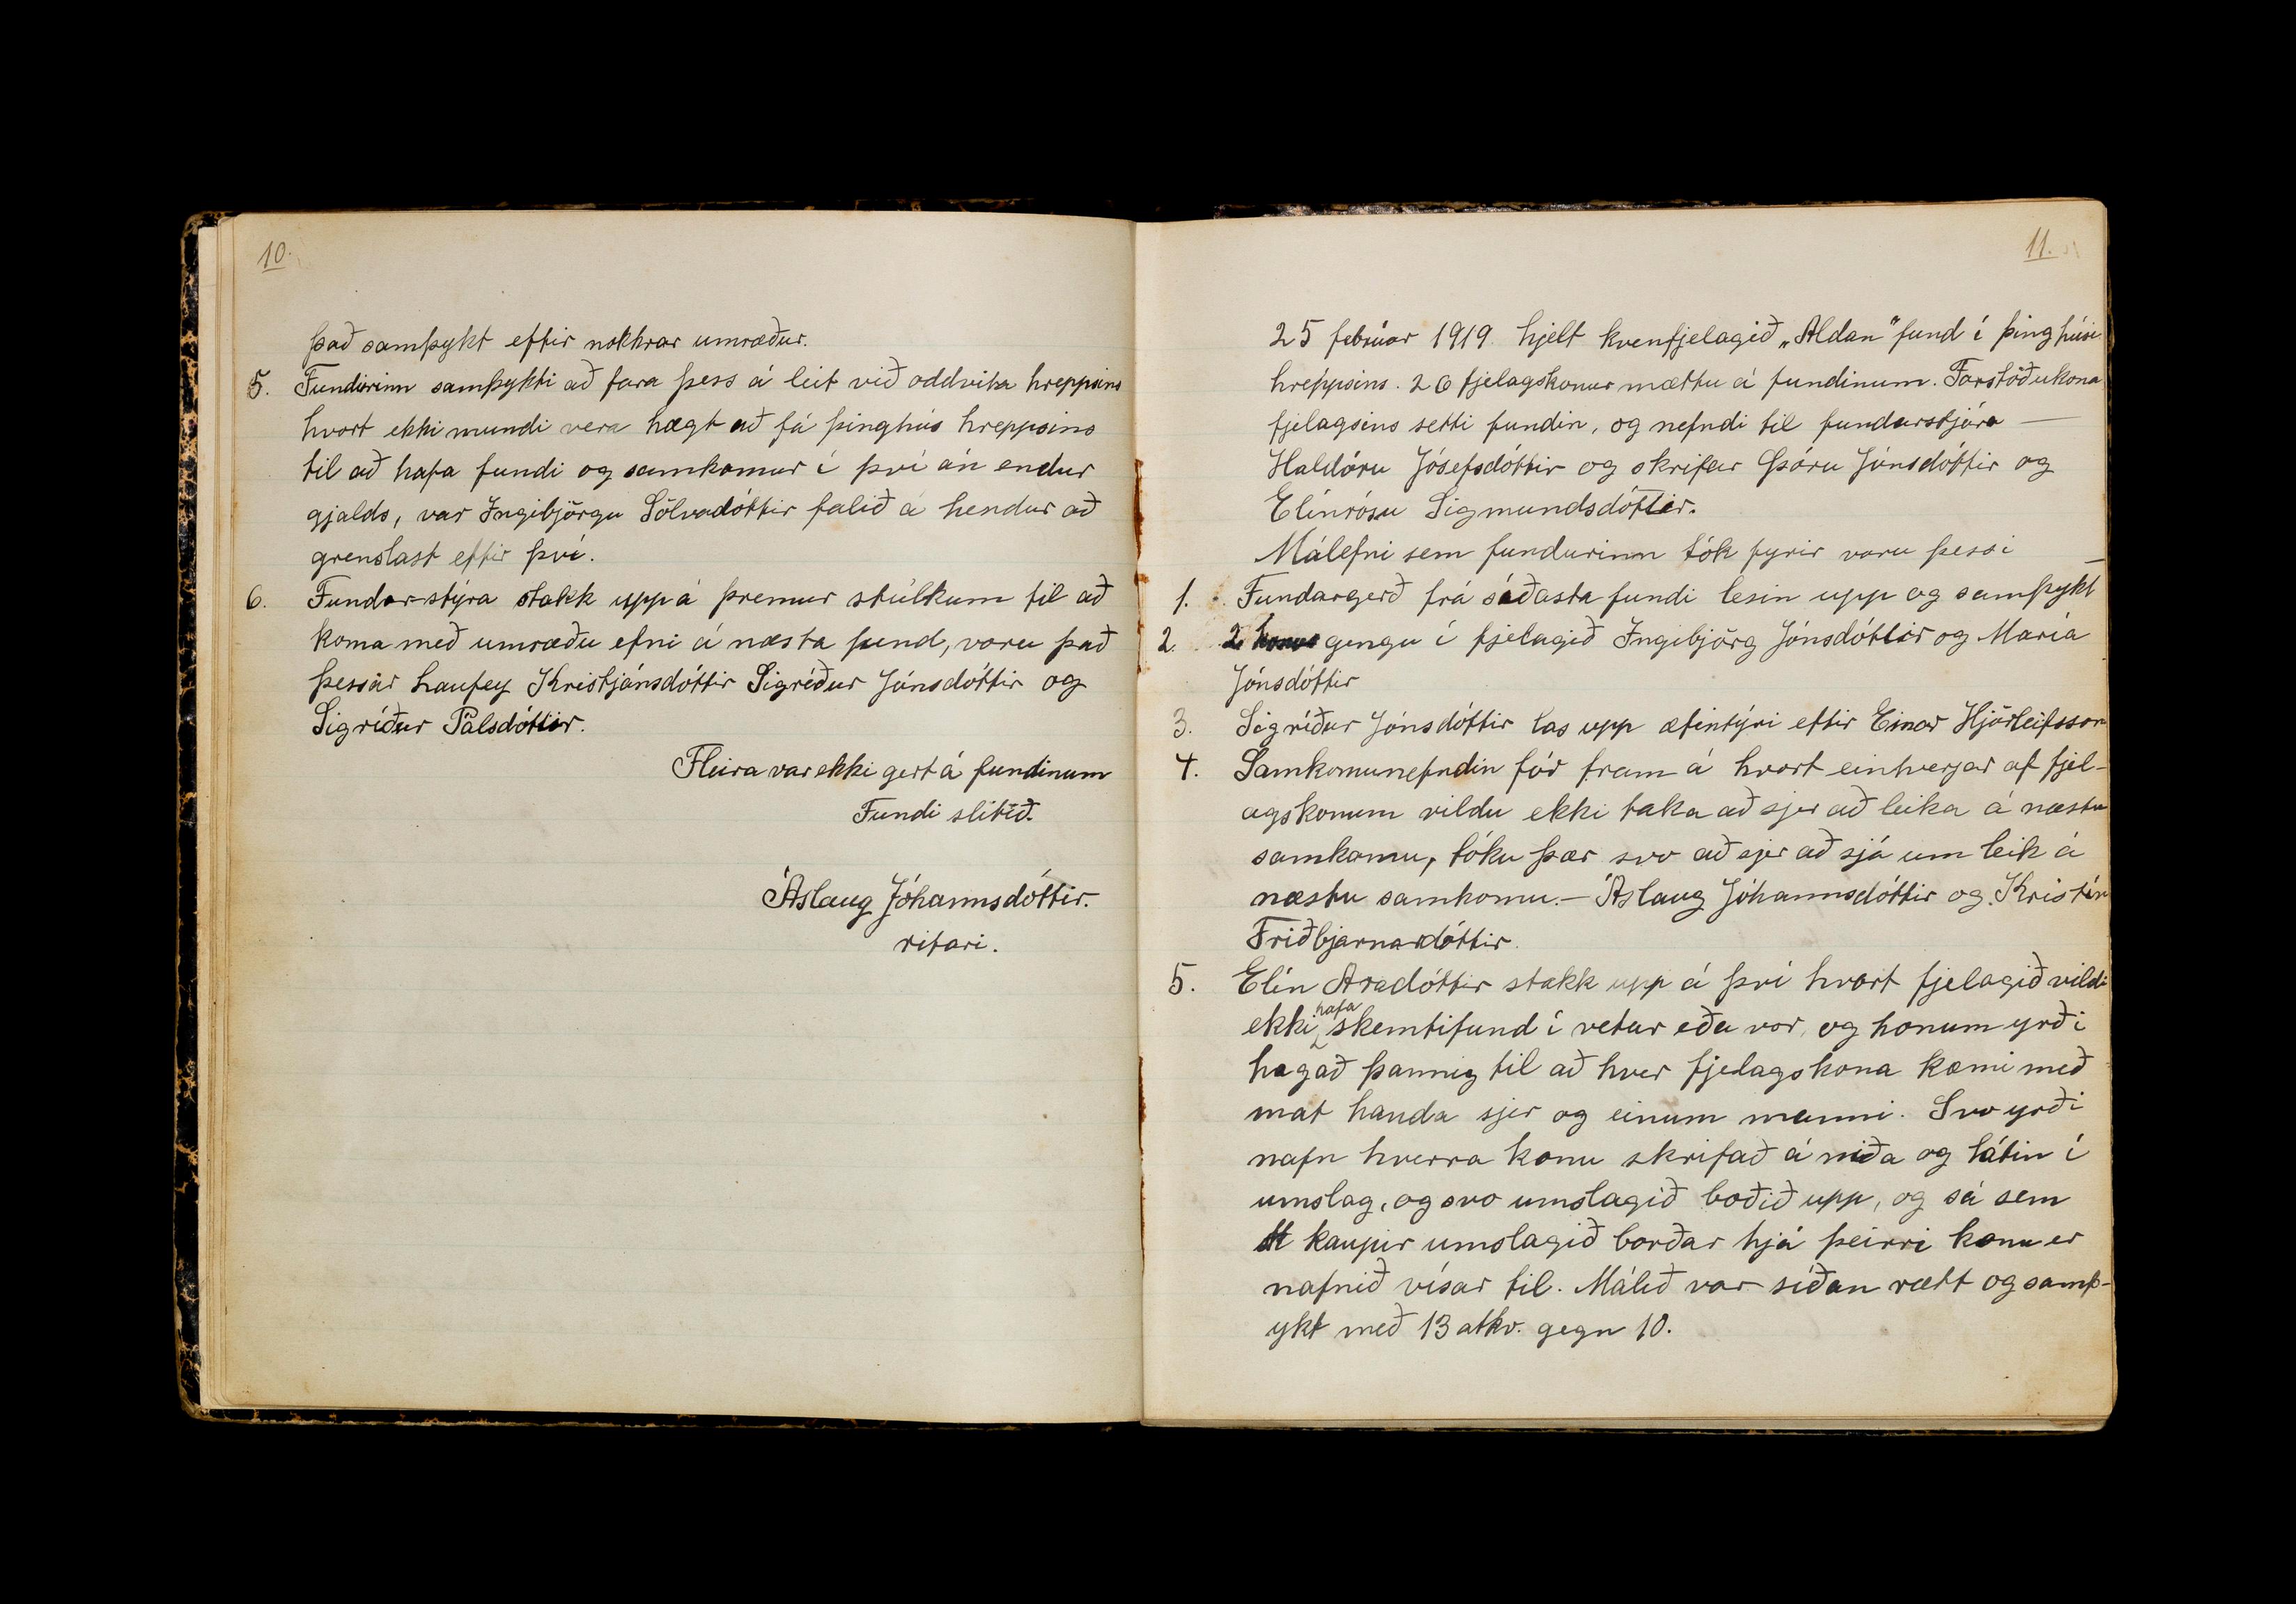 10.
það samþykt eftir nokkrar umræður.
5. Fundurinn samþykti að fara þess á leit við oddvita hreppsins
hvort ekki mundi vera hægt að fá þinghús hreppsins
til að hafa fundi og samkomur í því án endur
gjalds, var Ingibjörgu Sölvadóttir falið á hendur að
grenslast eftir því.
6. Fundarstýra stakk uppá þremur stúlkum til að
koma með umræðu efni á næsta fund, voru það
þessar Laufey Kristjánsdóttir Sigríður Jónsdóttir og
Sigríður Pálsdóttir.
Fleira var ekki gert á fundinum
Fundi slitið.
Áslaug Jóhannsdóttir.
ritari.
11.
25 febrúar 1919. hjelt kvenfjelagið „Aldan" fund í þinghúsi
hreppsins. 26 fjelagskonur mættu á fundinum. Forstöðukona
fjelagsins setti fundin, og nefndi til fundarstjóra —
Haldóru Jósefsdóttir og skrifar Þóru Jónsdóttir og
Elínrósu Sigmundsdóttir.
Málefni sem fundurinn tók fyrir voru þessi —
1. Fundargerð frá síðasta fundi lesin upp og samþykt
2. 2 konur gengu í fjelagið Ingibjörg Jónsdóttir og María
Jónsdóttir
3. Sigríður Jónsdóttir las upp æfintýri eftir Einar Hjörleifsson
4. Samkomunefndin fór fram á hvort einhverjar af fjel-
agskonum vildu ekki taka að sjer að leika á næstu
samkomu, tóku þær svo að sjer að sjá um leik á
næstu samkomu. — Áslaug Jóhannsdóttir og Kristín
Friðbjarnardóttir.
5. Elín Aradóttir stakk upp á því hvort fjelagið vildi
ekki hafa skemtifund í vetur eða vor, og honum yrði
hagað þannig til að hver fjelagskona kæmi með
mat handa sjer og einum manni. Svo yrði
nafn hverra konu skrifað á miða og látin í
umslag, og svo umslagið boðið upp, og sá sem
kaupir umslagið borðar hjá þeirri konu er
nafnið vísar til. Málið var síðan rætt og samþ-
ykt með 13 atkv. gegn 10.